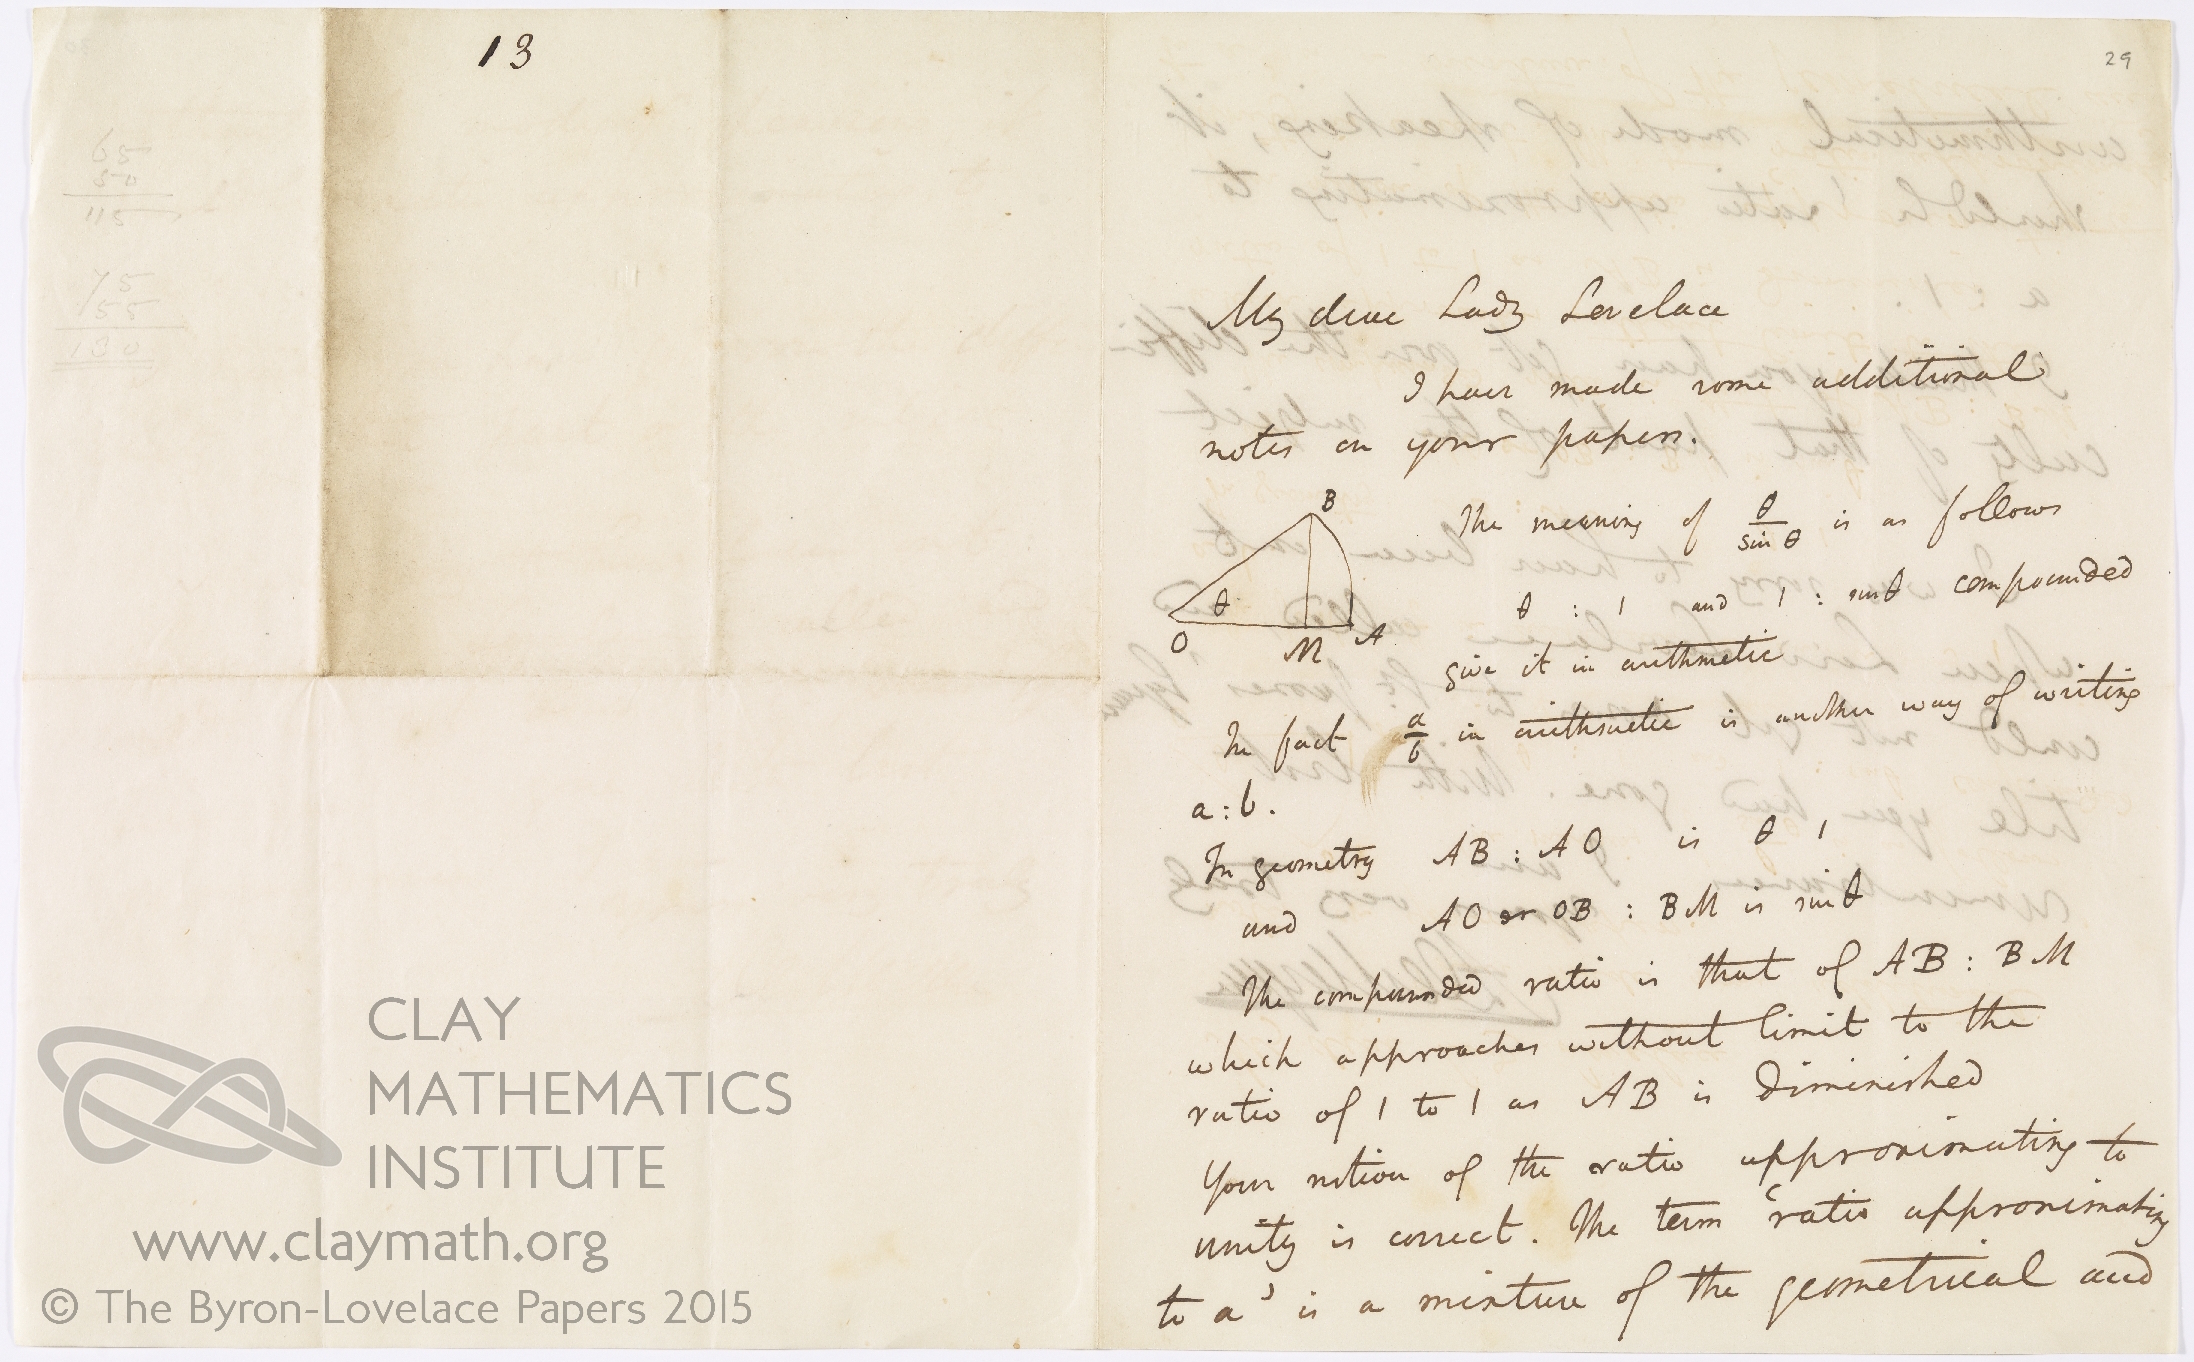 13
65
50
115
75
55
130
29
My dear Lady Lovelace
I have made some additional
notes on your papers.
B
θ
O
M
A
The meaning of θ/sin θ is as follows
θ : 1 and 1 : sin θ compounded
give it in arithmetic
In fact a/b in arithmetic is another way of writing
a : b .
In geometry AB : AO is θ 1
and AO or OB : BM is sin θ
The compounded ratio is that of AB : BM
which approaches without limit to the
ratio of 1 to 1 as AB is diminished
Your notion of the ratio approximating to
unity is correct. The term 'ratio approximating
to a' is a mixture of the geometrical and
CLAY
MATHEMATICS
INSTITUTE
www.claymath.org
© The Byron-Lovelace Papers 2015